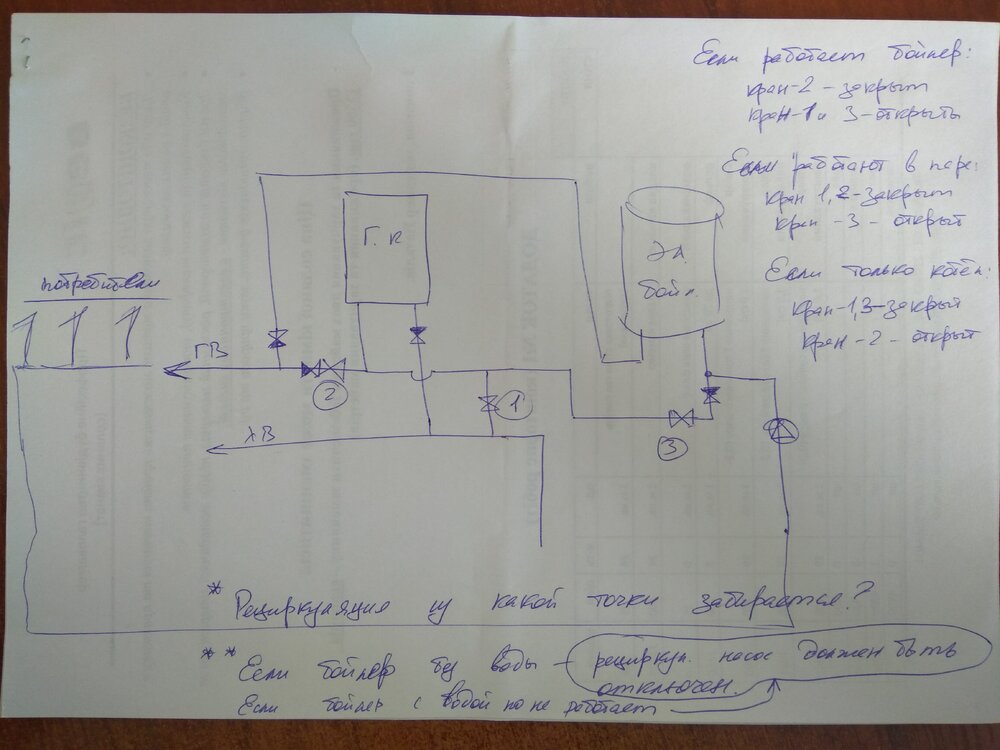 Если работает бойлер:
кран-2 - закрыт
кран-1 и 3-открыты
Если работают в паре:
кран 1,2-закрыт
кран -3 - открыт
Если только котёл:
кран-1,3-закрыт
кран-2 - открыт
Г.К
Эл.
бойл.
потребители
ГВ
2
1
3
ХВ
* Рециркуляция из какой точки забирается?
** Если бойлер без воды - рециркул. насос должен быть
отключен.
Если бойлер с водой но не работает